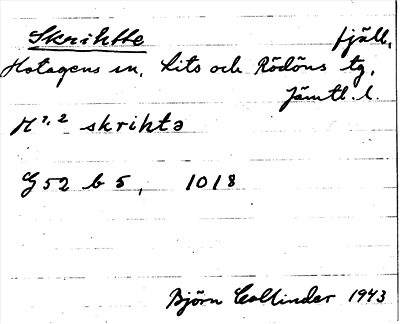 Skrihtte fjäll,
Hotagens sn, Lits och Rödöns tg,
Jämtl. l.
M¹,² skrihtə
G 52 b 5, 1018
Björn Collinder 1943